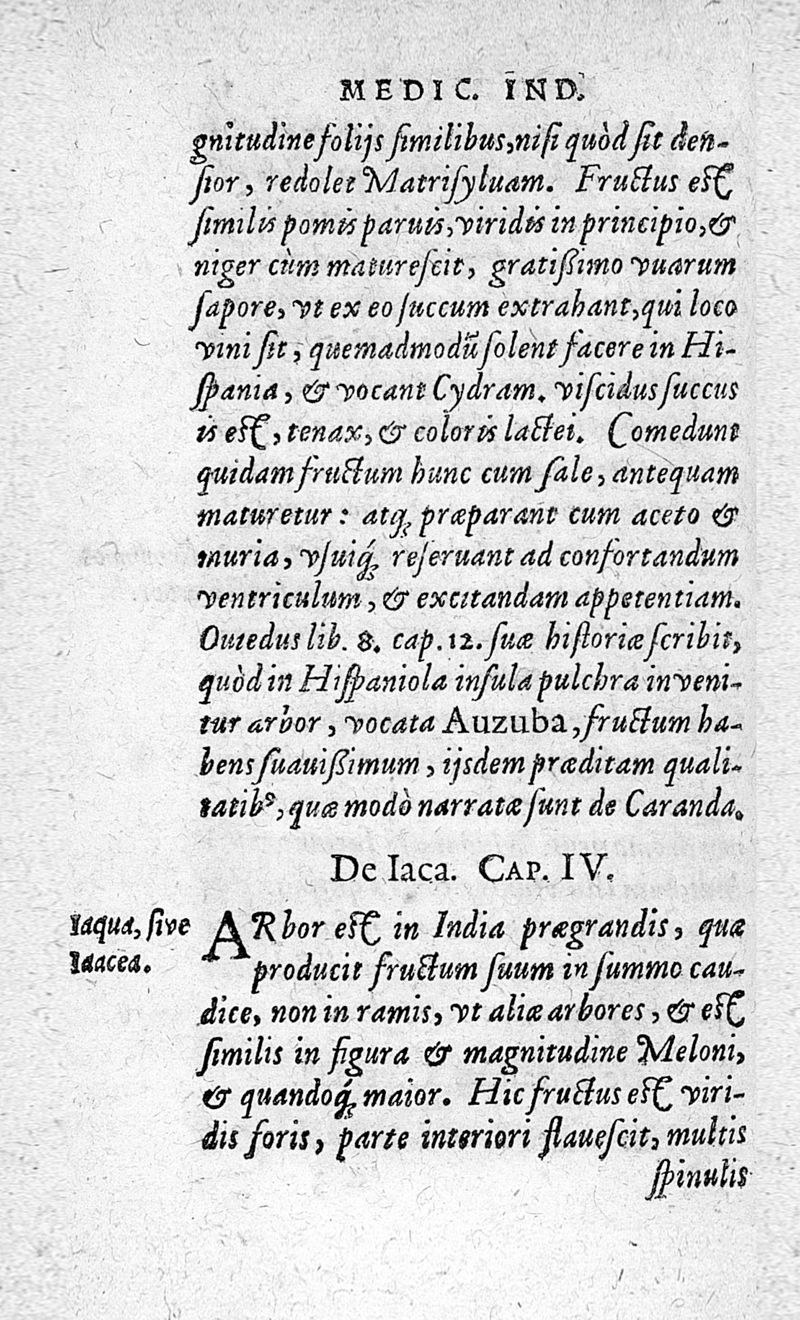 MEDIC. IND.
gnitudine folijs ſimilibus, niſi quòd ſit den-
ſior, redolet Matriſyluam. Fructus eſt
ſimilis pomis paruis, viridis in principio, &
niger cùm matureſcit, gratißimo vuarum
ſapore, vt ex eo ſuccum extrahant, qui loco
vini ſit, quemadmodũ ſolent facere in Hi-
ſpania, & vocant Cydram. viſcidus ſuccus
is eſt, tenax, & coloris lactei. Comedunt
quidam fructum hunc cum ſale, antequam
maturetur: atq; præparant cum aceto &
muria, vſuiq́; reſeruant ad confortandum
ventriculum, & excitandam appetentiam.
Ouiedus lib. 8. cap. 12. ſuæ hiſtoriæ ſcribit,
quòd in Hiſpaniola inſula pulchra inveni-
tur arbor, vocata Auzuba, fructum ha-
bens ſuauißimum, ijsdem præditam quali-
tatibꝰ, quæ modò narratæ ſunt de Caranda.
De Iaca. CAP. IV.
Iaqua, ſive
Iaacea.
ARbor eſt in India prægrandis, quæ
producit fructum ſuum in ſummo cau-
dice, non in ramis, vt aliæ arbores, & eſt
ſimilis in figura & magnitudine Meloni,
& quandoq́; maior. Hic fructus eſt viri-
dis foris, parte interiori flaueſcit, multis
ſpinulis